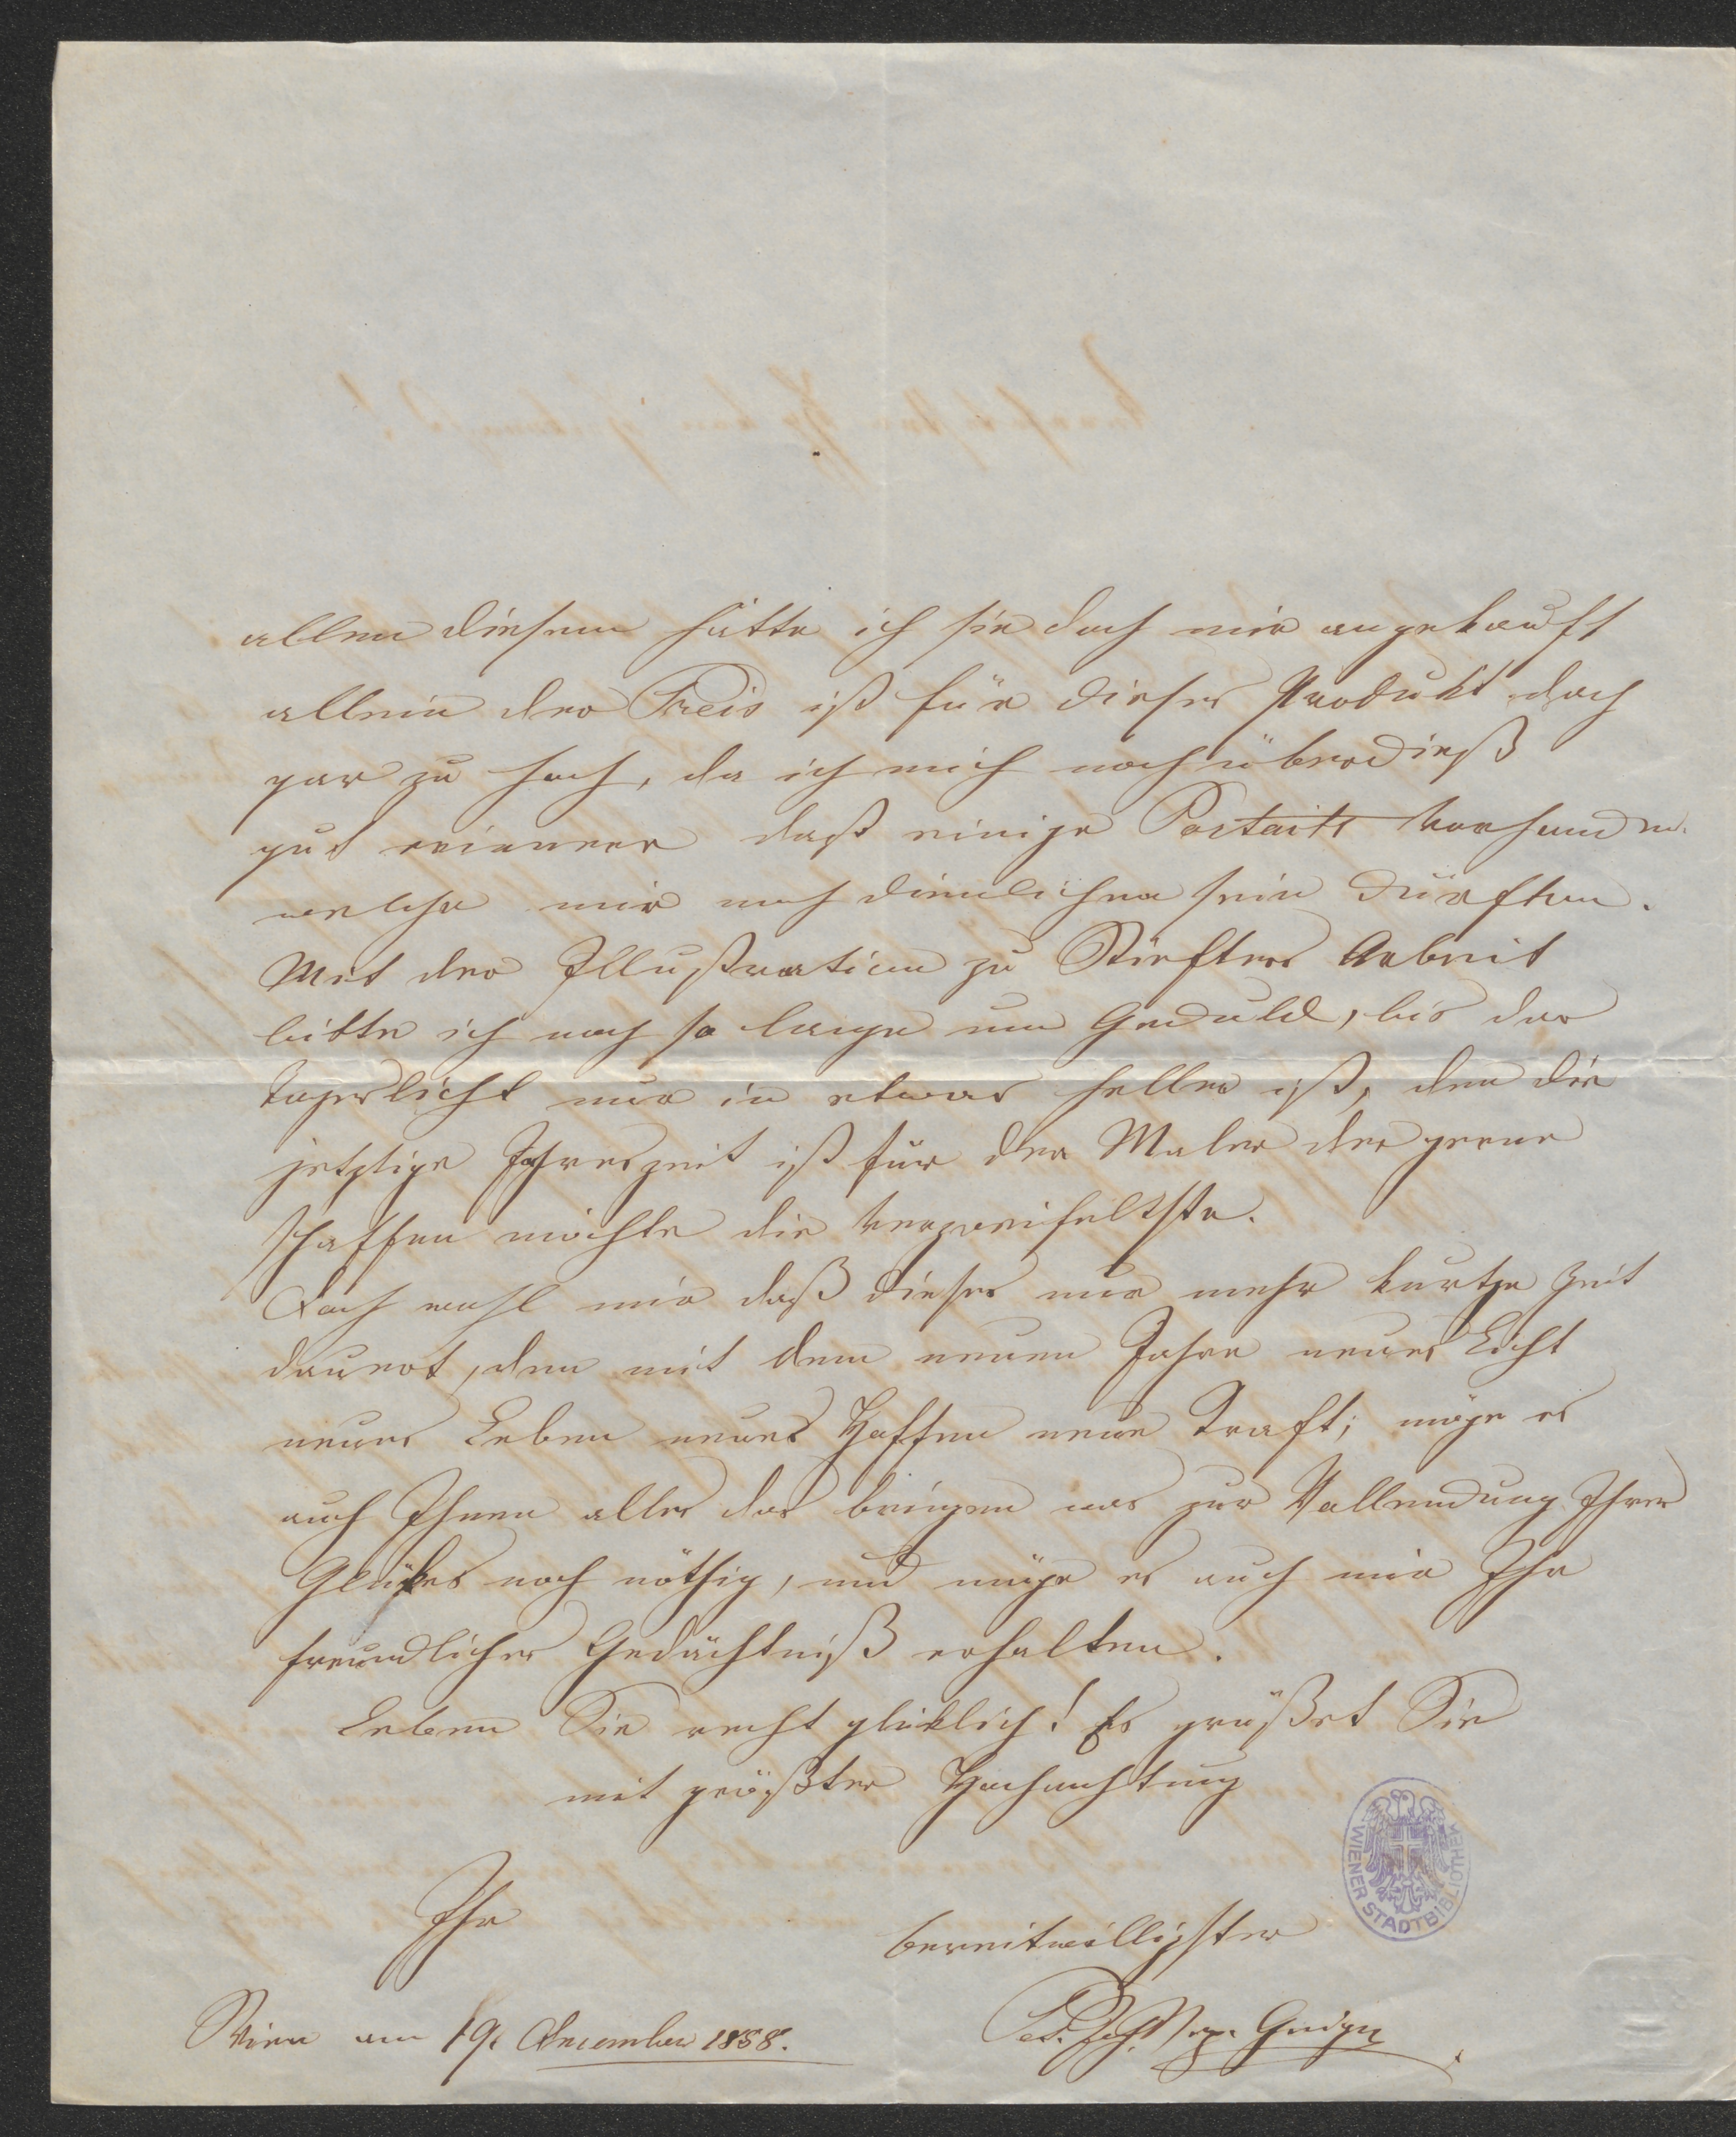 allem diesem hätte ich sie doch mir angekauft
allein der Preis ist für dieses Produkt doch
gar zu hoch, da ich mich noch überdieß
gut erinner daß einige Portaits vorhanden.
welche mir noch dienlicher sein dürften.
Mit der Illustration zu Stifters Arbeit
bitte ich noch so lange um Geduld, bis das
Tageslicht nur in etwas heller ist, den die
jetztige Jahreszeit ist für den Maler der gerne
schaffen möchte die verzweifeltste.
Doch wohl mir daß dieses nur mehr kurtze Zeit
dauert, den mit dem neuen Jahre neues Licht
neues Leben neues Hoffen neue Kraft; möge es
auch Ihnen alles das bringen was zur Vollendung Ihres
Glükes noch nöthig, und möge es auch mir Ihr
freundliches Gedächtniß erhalten.
Leben Sie recht glüklich! Es grüßet Sie
mit größter Hochachtung
Ihr
bereitwilligster
Wien am 19. December 1858.
Pet. Joh. Nep. Geiger
WIENER STADTBIBLIOTHEK